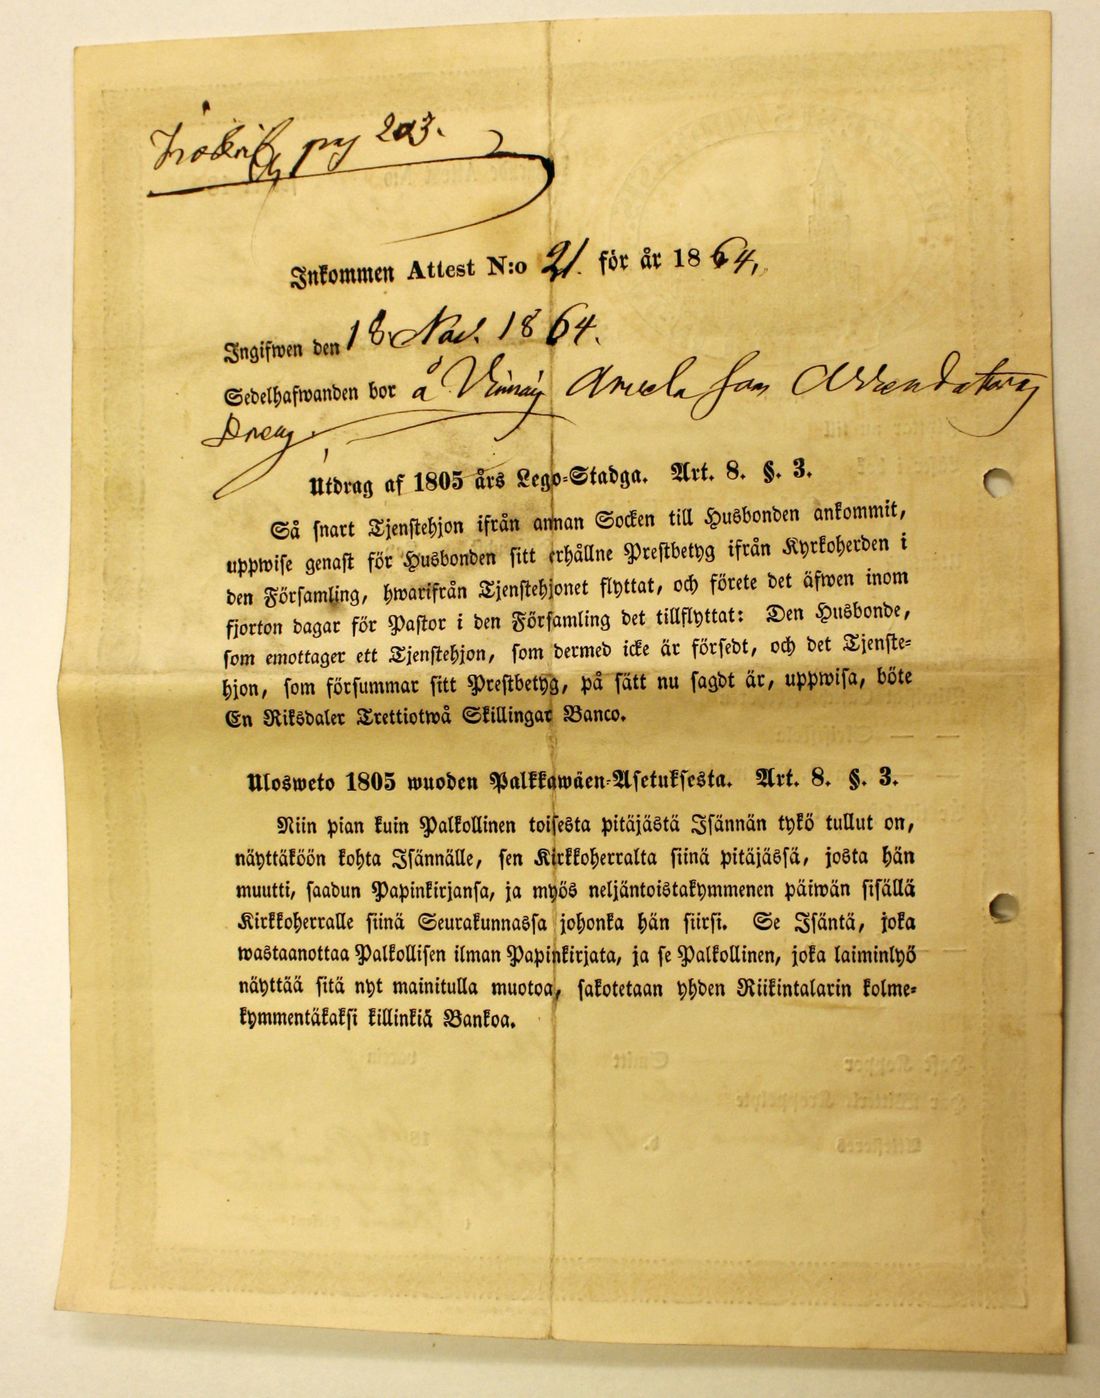 pag 203.
Inkommen Attest N:o 21. för år 1864.
Ingifwen den 18 Nov. 1864.
Sedelhafwanden bor å
Dreng.
Utdrag af 1805 års Lego-Stadga. Art. 8. §. 3.
Så snart Tjenstehjon ifrån annan Socken till Husbonden ankommit,
uppwise genast för Husbonden sitt erhållne Prestbetyg ifrån Kyrkoherden i
den Församling, hwarifrån Tjenstehjonet flyttat, och förete det äfwen inom
fjorton dagar för Pastor i den Församling det tillflyttat: Den Husbonde,
som emottager ett Tjenstehjon, som dermed icke är försedt, och det Tjenste-
hjon, som försummar sitt Prestbetyg, på sätt nu sagdt är, uppwisa, böte
En Riksdaler Trettiotwå Skillingar Banco.
Ulosweto 1805 wuoden Palkkawäen-Asetuksesta. Art. 8. §. 3.
Niin pian kuin Palkollinen toisesta pitäjästä Isännän tykö tullut on,
näyttäköön kohta Isännälle, sen Kirkkoherralta siinä pitäjässä, josta hän
muutti, saadun Papinkirjansa, ja myös neljäntoistakymmenen päiwän sisällä
Kirkkoherralle siinä Seurakunnassa johonka hän siirsi. Se Isäntä, joka
wastaanottaa Palkollisen ilman Papinkirjata, ja se Palkollinen, joka laiminlyö
näyttää sitä nyt mainitulla muotoa, sakotetaan yhden Riikintalarin kolme-
kymmentäkaksi killinkiä Bankoa.